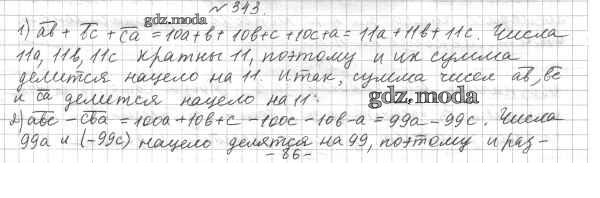 № 343.
gdz.moda
1) ab + bc + ca = 10a + b + 10b + c + 10c + a = 11a + 11b + 11c. Числа
11a, 11b, 11c кратны 11, поэтому и их сумма
делится нацело на 11. Итак, сумма чисел ab, bc
и ca делится нацело на 11.
gdz.moda
2) abc - cba = 100a + 10b + c - 100c - 10b - a = 99a - 99c. Числа
99a и (-99c) нацело делятся на 99, поэтому и раз-
- 86 -